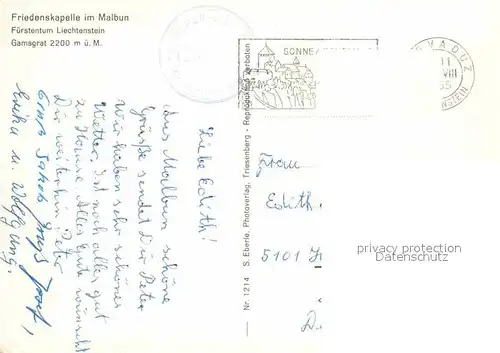 Friedenskapelle im Malbun
Fürstentum Liechtenstein
Gamsgrat 2200 m ü. M.
SONNE
VADUZ
11
VIII
Liebe Edith!
Aus Malbun schöne
Grüße sendet Dir Peter
Wir haben sehr schönes
Wetter. Ist noch alles gut
zu Hause. Alles Gute wünscht
Dir weiterhin Peter
Erika u. Wolfgang.
Nr. 1214 S. Eberle, Photoverlag, Triesenberg - Reproduktion verboten
Frau
Edith
5101
privacy protection
Datenschutz